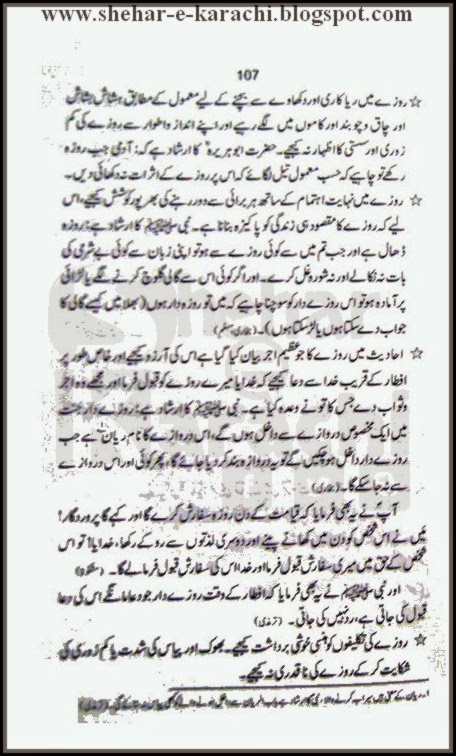 www.shehar-e-karachi.blogspot.com
107
☆ روزے میں ریاکاری اور دکھاوے سے بچنے کے لیے معمول کے مطابق ہشاش بشاش
اور چاق و چوبند اور کاموں میں لگے رہے اور اپنے انداز و اطوار سے روزے کی کم
زوری اور سستی کا اظہار نہ کیجیے۔ حضرت ابو ہریرہؓ کا ارشاد ہے کہ: آدمی جب روزہ
رکھے تو چاہیے کہ حسب معمول تیل لگائے کہ اس پر روزے کے اثرات نہ دکھائی دیں۔
☆ روزے میں نہایت اہتمام کے ساتھ ہر برائی سے دور رہنے کی بھرپور کوشش کیجیے، اس
لیے کہ روزے کا مقصود ہی زندگی کو پاکیزہ بنانا ہے۔ نبی ﷺ کا ارشاد ہے: روزہ
ڈھال ہے اور جب تم میں سے کوئی روزے سے ہو تو اپنی زبان سے کوئی بے شرمی کی
بات نہ نکالے اور نہ شور و غل کرے۔ اور اگر کوئی اس سے گالی گلوچ کرنے لگے یا لڑائی
پر آمادہ ہو تو اس روزے دار کو سوچنا چاہیے کہ میں تو روزہ دار ہوں (بھلا میں کیسے گالی کا
جواب دے سکتا ہوں یا لڑ سکتا ہوں)۔ (بخاری، مسلم)
☆ احادیث میں روزے کا جو عظیم اجر بیان کیا گیا ہے اس کی آرزو کیجیے اور خاص طور پر
افطار کے قریب خدا سے دعا کیجیے کہ خدایا میرے روزے کو قبول فرما اور مجھے وہ اجر
و ثواب دے جس کا تو نے وعدہ کیا ہے۔ نبی ﷺ کا ارشاد ہے: روزے دار جنت
میں ایک مخصوص دروازے سے داخل ہوں گے، اس دروازے کا نام ریان ہے جب
روزے دار داخل ہو چکیں گے تو یہ دروازہ بند کر دیا جائے گا، پھر کوئی اور اس دروازے
سے نہ جا سکے گا۔ (بخاری)
آپؐ نے یہ بھی فرمایا کہ قیامت کے دن روزہ سفارش کرے گا اور کہے گا پروردگار!
میں نے اس شخص کو دن میں کھانے پینے اور دوسری لذتوں سے روکے رکھا، خدایا! تو اس
شخص کے حق میں میری سفارش قبول فرما اور خدا اس کی سفارش قبول فرمالے گا۔ (مشکوٰۃ)
اور نبی ﷺ نے یہ بھی فرمایا کہ افطار کے وقت روزے دار جو دعا مانگے اس کی دعا
قبول کی جاتی ہے، رد نہیں کی جاتی۔ (ترمذی)
☆ روزے کی تکلیفوں کو ہنسی خوشی برداشت کیجیے۔ بھوک اور پیاس کی شدت یا کم زوری کی
شکایت کر کے روزے کی ناقدری نہ کیجیے۔
۱۔ ریان کے معنی ہیں سیراب کرنے والا